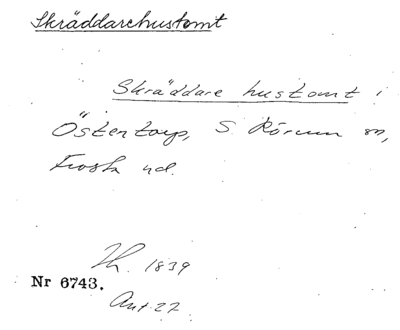 Skräddarehustomt
Skräddare hustomt i
Östentorp, S Rörum sn,
Frosta hd.
Th. 1839
Nr 6743.
Ant. 27